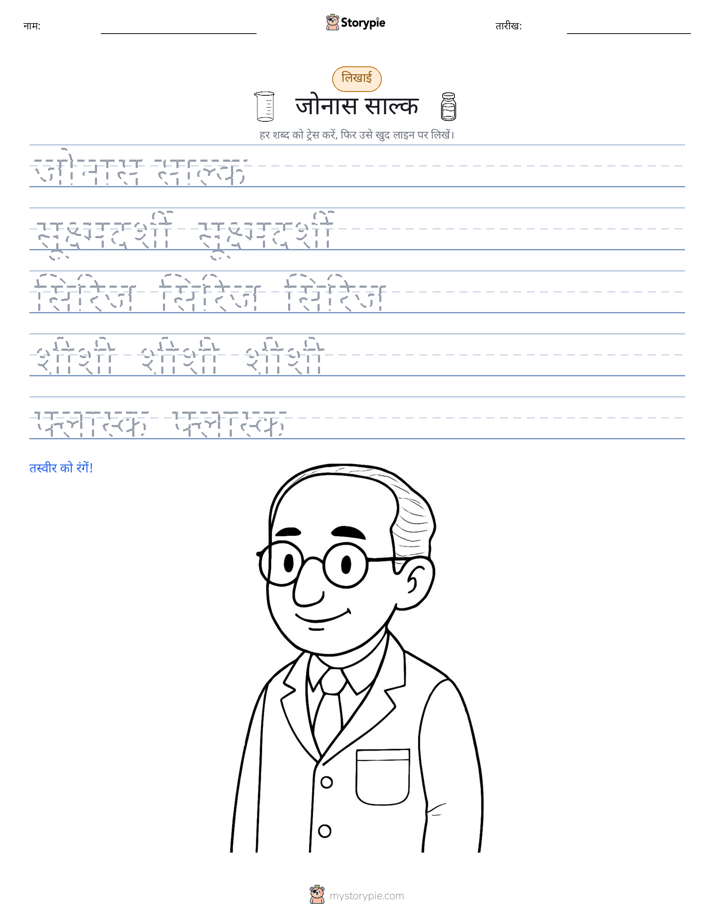 नाम:
Storypie
तारीख:
लिखाई
जोनास साल्क
हर शब्द को ट्रेस करें, फिर उसे खुद लाइन पर लिखें।
जोनास साल्क
सूक्ष्मदर्शी सूक्ष्मदर्शी
सिरिंज सिरिंज सिरिंज
शीशी शीशी शीशी
फ्लास्क फ्लास्क
तस्वीर को रंगें!
mystorypie.com